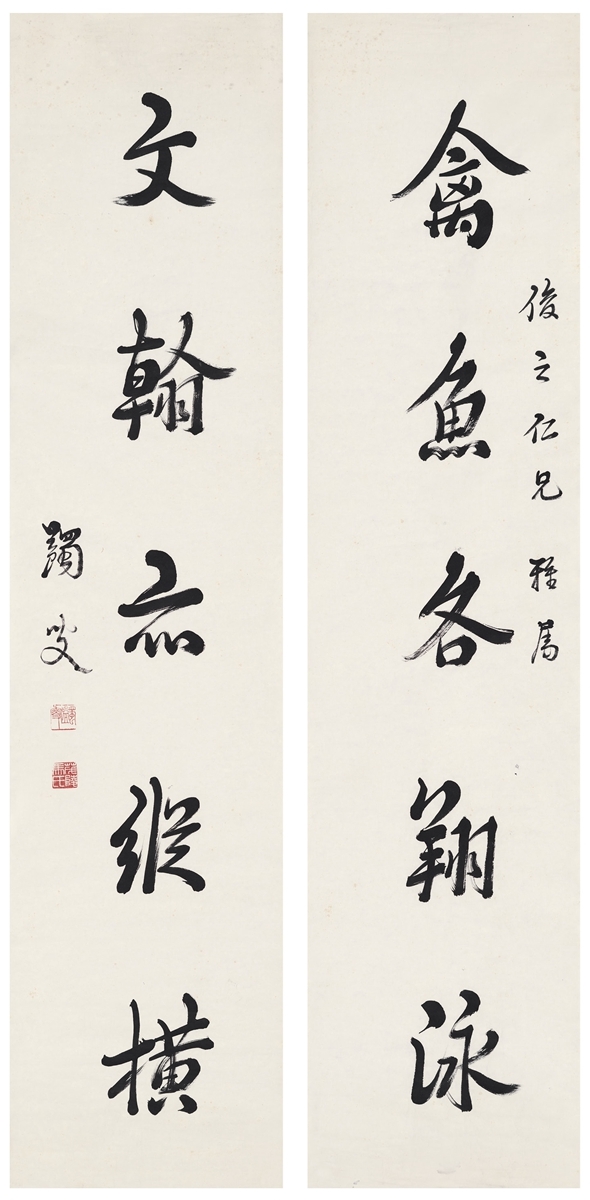 禽魚各翔泳
俊之仁兄 雅屬
文翰亦縱橫
蠲叟